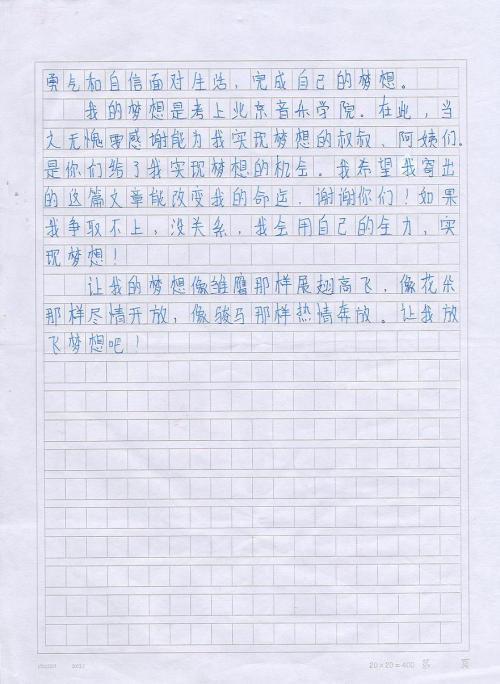 勇气和自信面对生活，完成自己的梦想。
我的梦想是考上北京音乐学院。在此，当
之无愧要感谢能为我实现梦想的叔叔、阿姨们.
是你们给了我实现梦想的机会。我希望我写出
的这篇文章能改变我的命运，谢谢你们！如果
我争取不上，没关系，我会用自己的全力，实
现梦想！
让我的梦想像雏鹰那样展翅高飞，像花朵
那样尽情开放，像骏马那样热情奔放。让我放
飞梦想吧！
20×20=400 页